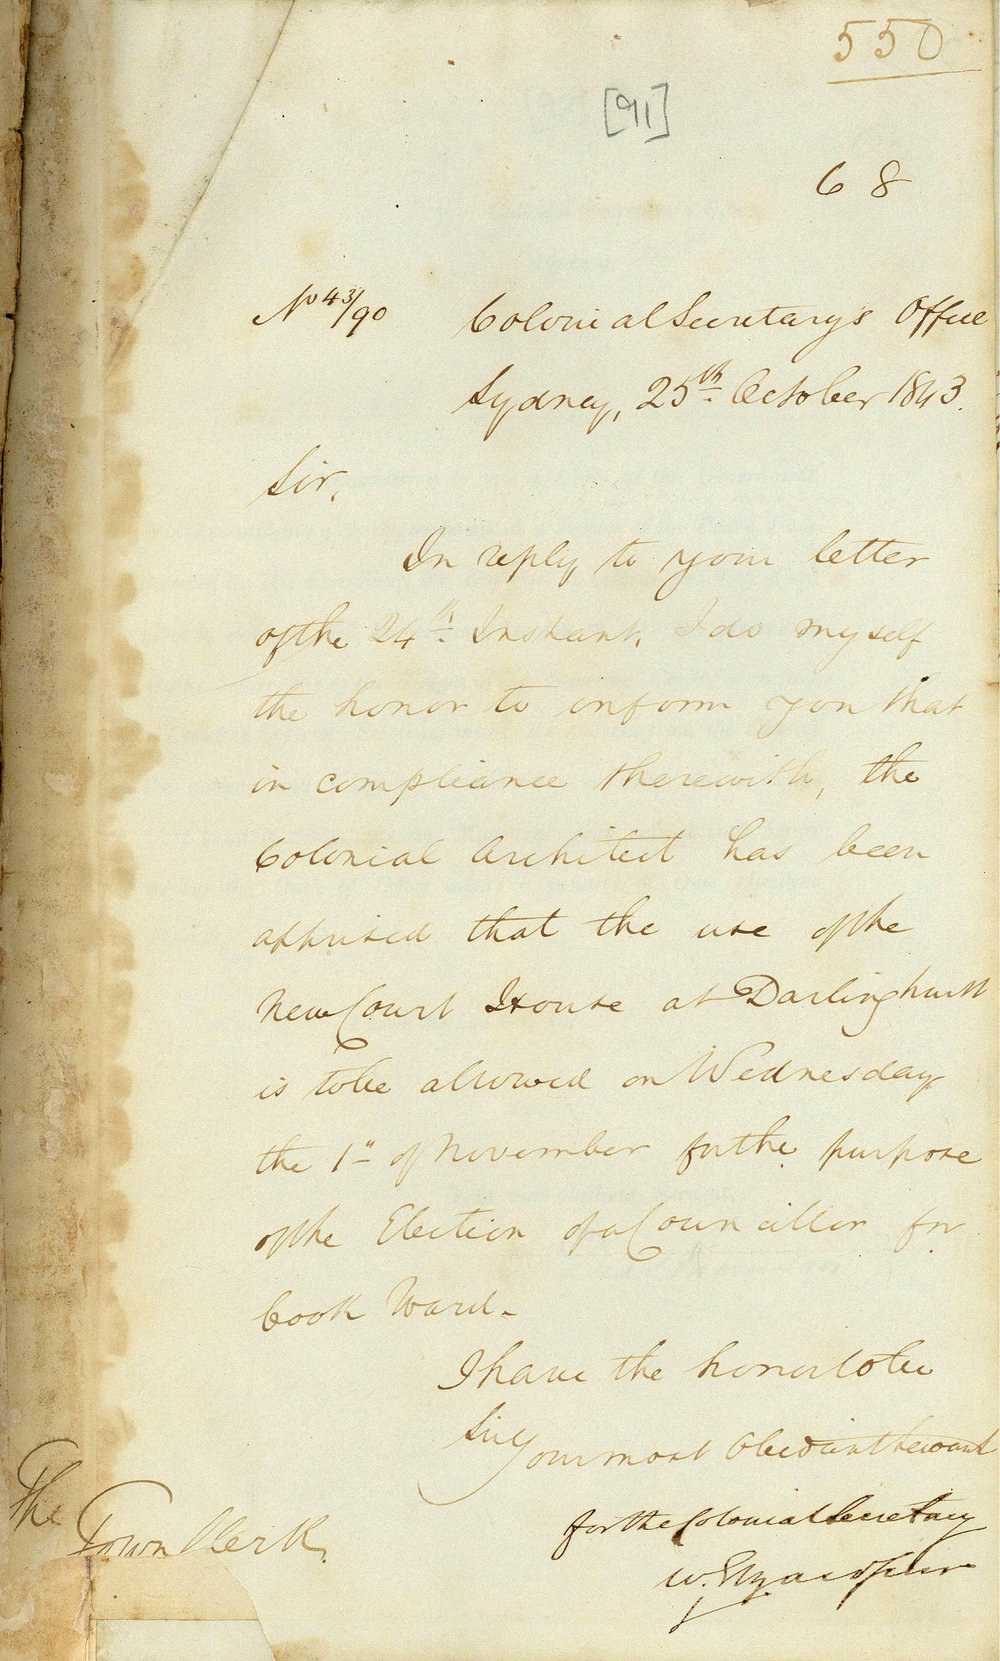 550
[91]
68
No 43/90
Colonial Secretary's Office
Sydney, 25th October 1843.
Sir,
In reply to your letter
of the 24th Instant, I do myself
the honor to inform you that
in compliance therewith, the
Colonial Architect has been
apprised that the use of the
New Court House at Darlinghurst
is to be allowed on Wednesday
the 1st of November for the purpose
of the Election of a Councillor for
Cook Ward.
I have the honor to be
Sir
Your most Obedient Servant
for the Colonial Secretary
W. Elyard Junr
The
Town Clerk.